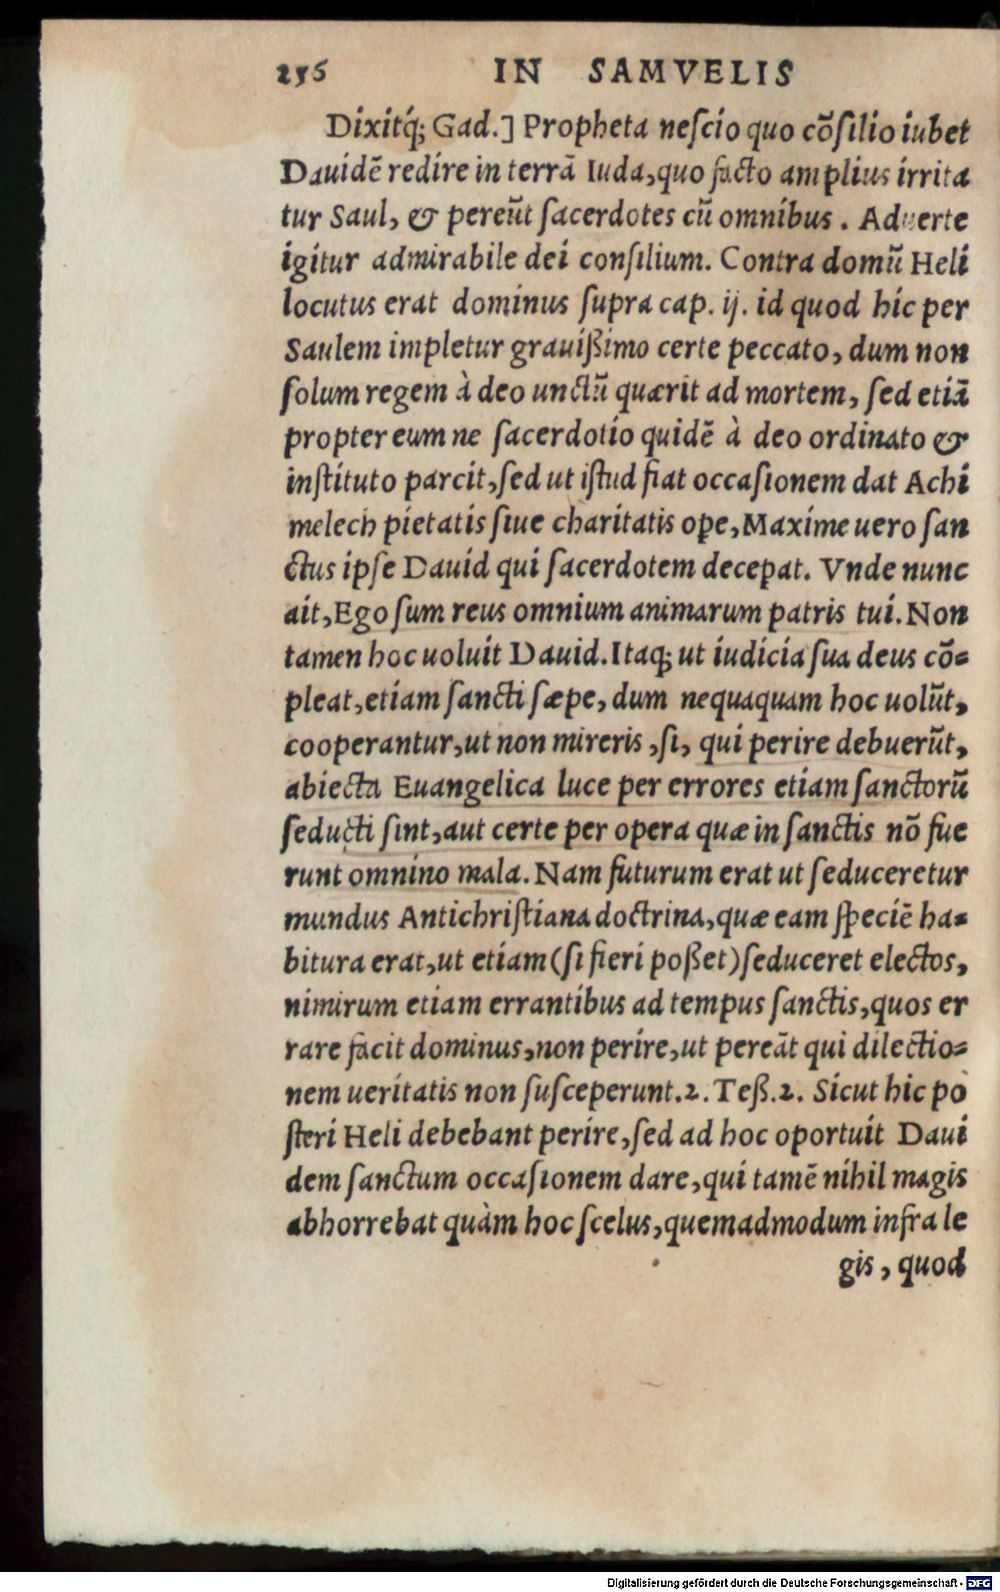 256 IN SAMVELIS
Dixitq́; Gad.] Propheta neſcio quo cõſilio iubet
Dauidẽ redire in terrã Iuda,quo facto amplius irrita
tur Saul, & pereũt ſacerdotes cũ omnibus . Aduerte
igitur admirabile dei conſilium. Contra domũ Heli
locutus erat dominus ſupra cap. ij. id quod hic per
Saulem impletur grauißimo certe peccato, dum non
ſolum regem à deo unctũ quærit ad mortem, ſed etiã
propter eum ne ſacerdotio quidẽ à deo ordinato &
inſtituto parcit,ſed ut iſtud fiat occaſionem dat Achi
melech pietatis ſiue charitatis ope,Maxime uero ſan
ctus ipſe Dauid qui ſacerdotem decepat. Vnde nunc
ait,Ego ſum reus omnium animarum patris tui.Non
tamen hoc uoluit Dauid.Itaq; ut iudicia ſua deus cõ=
pleat,etiam ſancti ſæpe, dum nequaquam hoc uolũt,
cooperantur,ut non mireris ,ſi, qui perire debuerũt,
abiecta Euangelica luce per errores etiam ſanctorũ
ſeducti ſint,aut certe per opera quæ in ſanctis nõ fue
runt omnino mala.Nam futurum erat ut ſeduceretur
mundus Antichriſtiana doctrina,quæ eam ſpeciẽ ha=
bitura erat,ut etiam(ſi fieri poßet)ſeduceret electos,
nimirum etiam errantibus ad tempus ſanctis,quos er
rare facit dominus,non perire,ut pereãt qui dilectio=
nem ueritatis non ſuſceperunt.2.Teß.2. Sicut hic po
ſteri Heli debebant perire,ſed ad hoc oportuit Daui
dem ſanctum occaſionem dare,qui tamẽ nihil magis
abhorrebat quàm hoc ſcelus,quemadmodum infra le
gis, quod
Digitalisierung gefördert durch die Deutsche Forschungsgemeinschaft - DFG